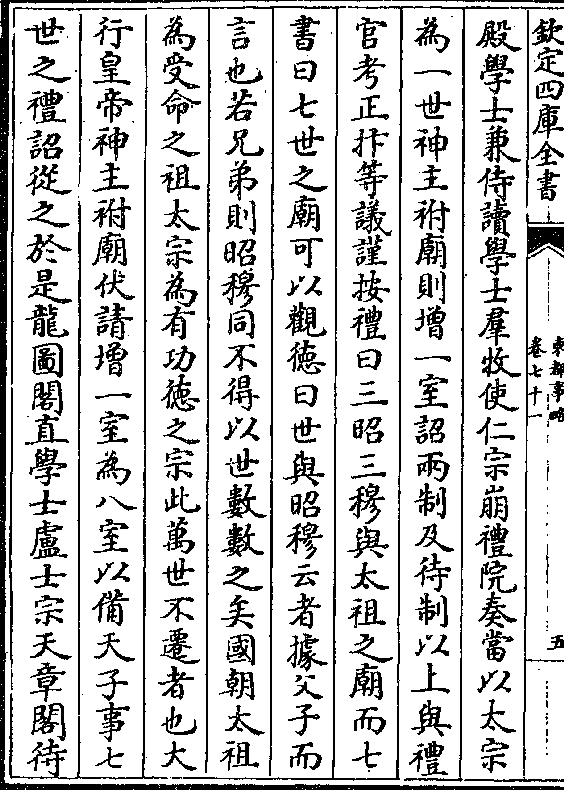 欽定四庫全書
東都事略
卷七十一
五
殿學士兼侍讀學士羣牧使仁宗崩禮院奏當以太宗
為一世神主祔廟則增一室詔兩制及待制以上與禮
官考正抃等議謹按禮曰三昭三穆與太祖之廟而七
書曰七世之廟可以觀徳曰世與昭穆云者據父子而
言也若兄弟則昭穆同不得以世數數之矣國朝太祖
為受命之祖太宗為有功徳之宗此萬世不遷者也大
行皇帝神主祔廟伏請增一室為八室以備天子事七
世之禮詔從之於是龍圖閣直學士盧士宗天章閣待